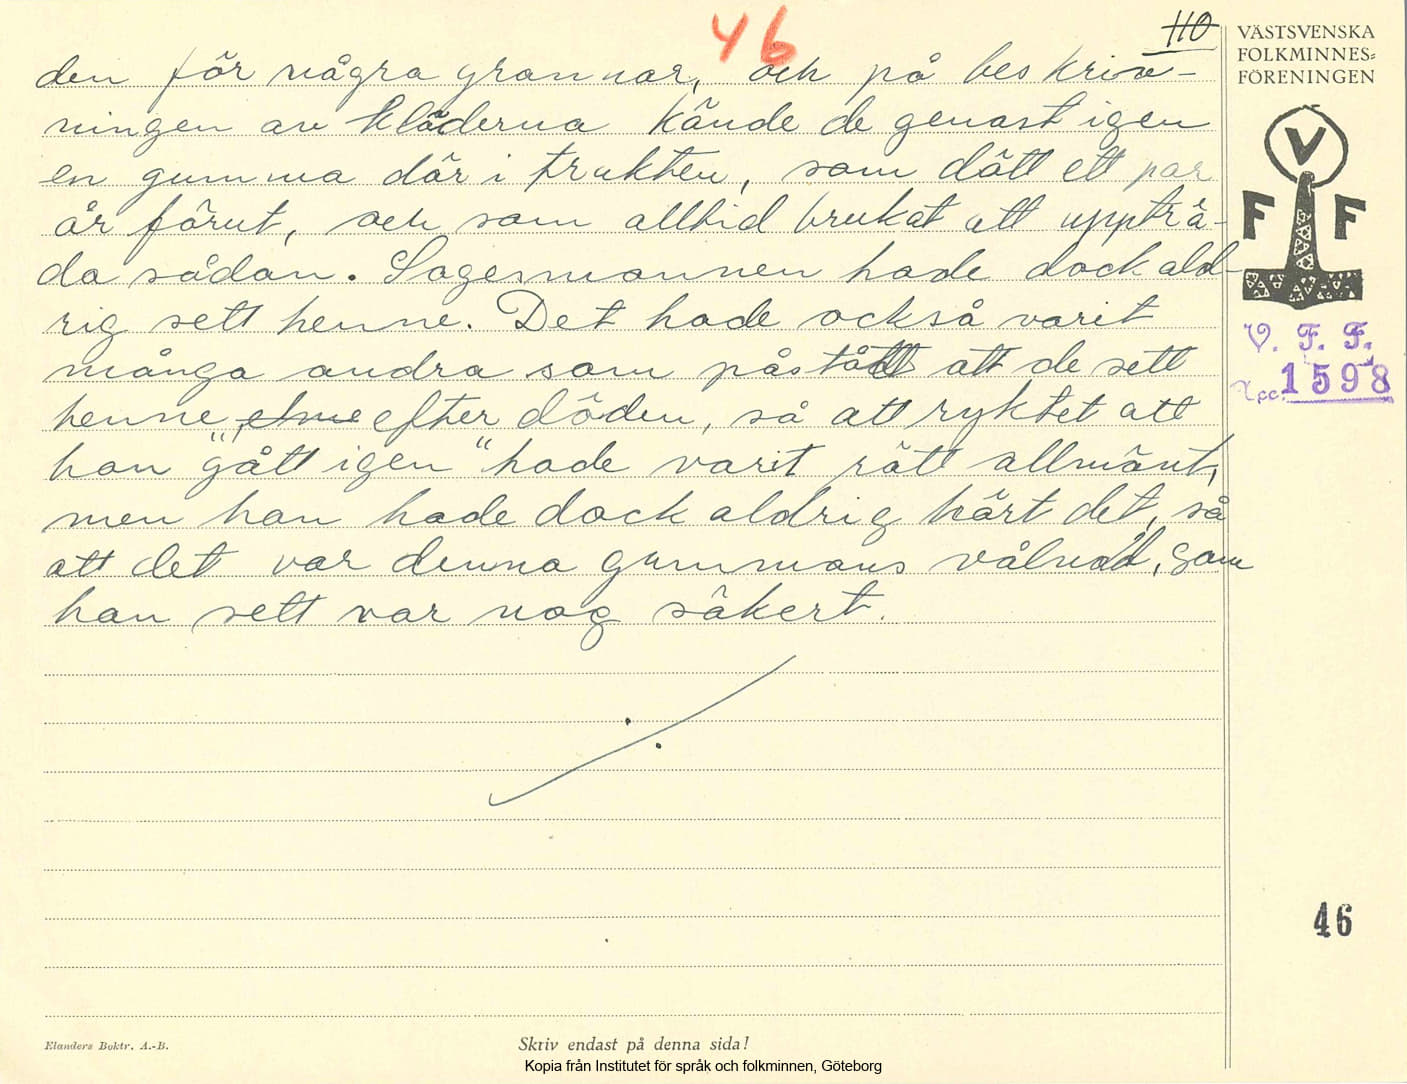 46
110
VÄSTSVENSKA
FOLKMINNES=
FÖRENINGEN
V
F F
V. F. F.
1598
den för några grannar, och på beskriv-
ningen av kläderna kände de genast igen
en gumma där i trakten, som dött ett par
år förut, och som alltid brukat att uppträ-
da sådan. Sagesmannen hade dock ald-
rig sett henne. Det hade också varit
många andra som påstått att de sett
henne efter döden, så att ryktet att
hon "gått igen" hade varit rätt allmänt,
men han hade dock aldrig hört det, så
att det var denna gummans vålnad, som
han sett var nog säkert.
46
Elanders Boktr. A.-B.
Skriv endast på denna sida!
Kopia från Institutet för språk och folkminnen, Göteborg